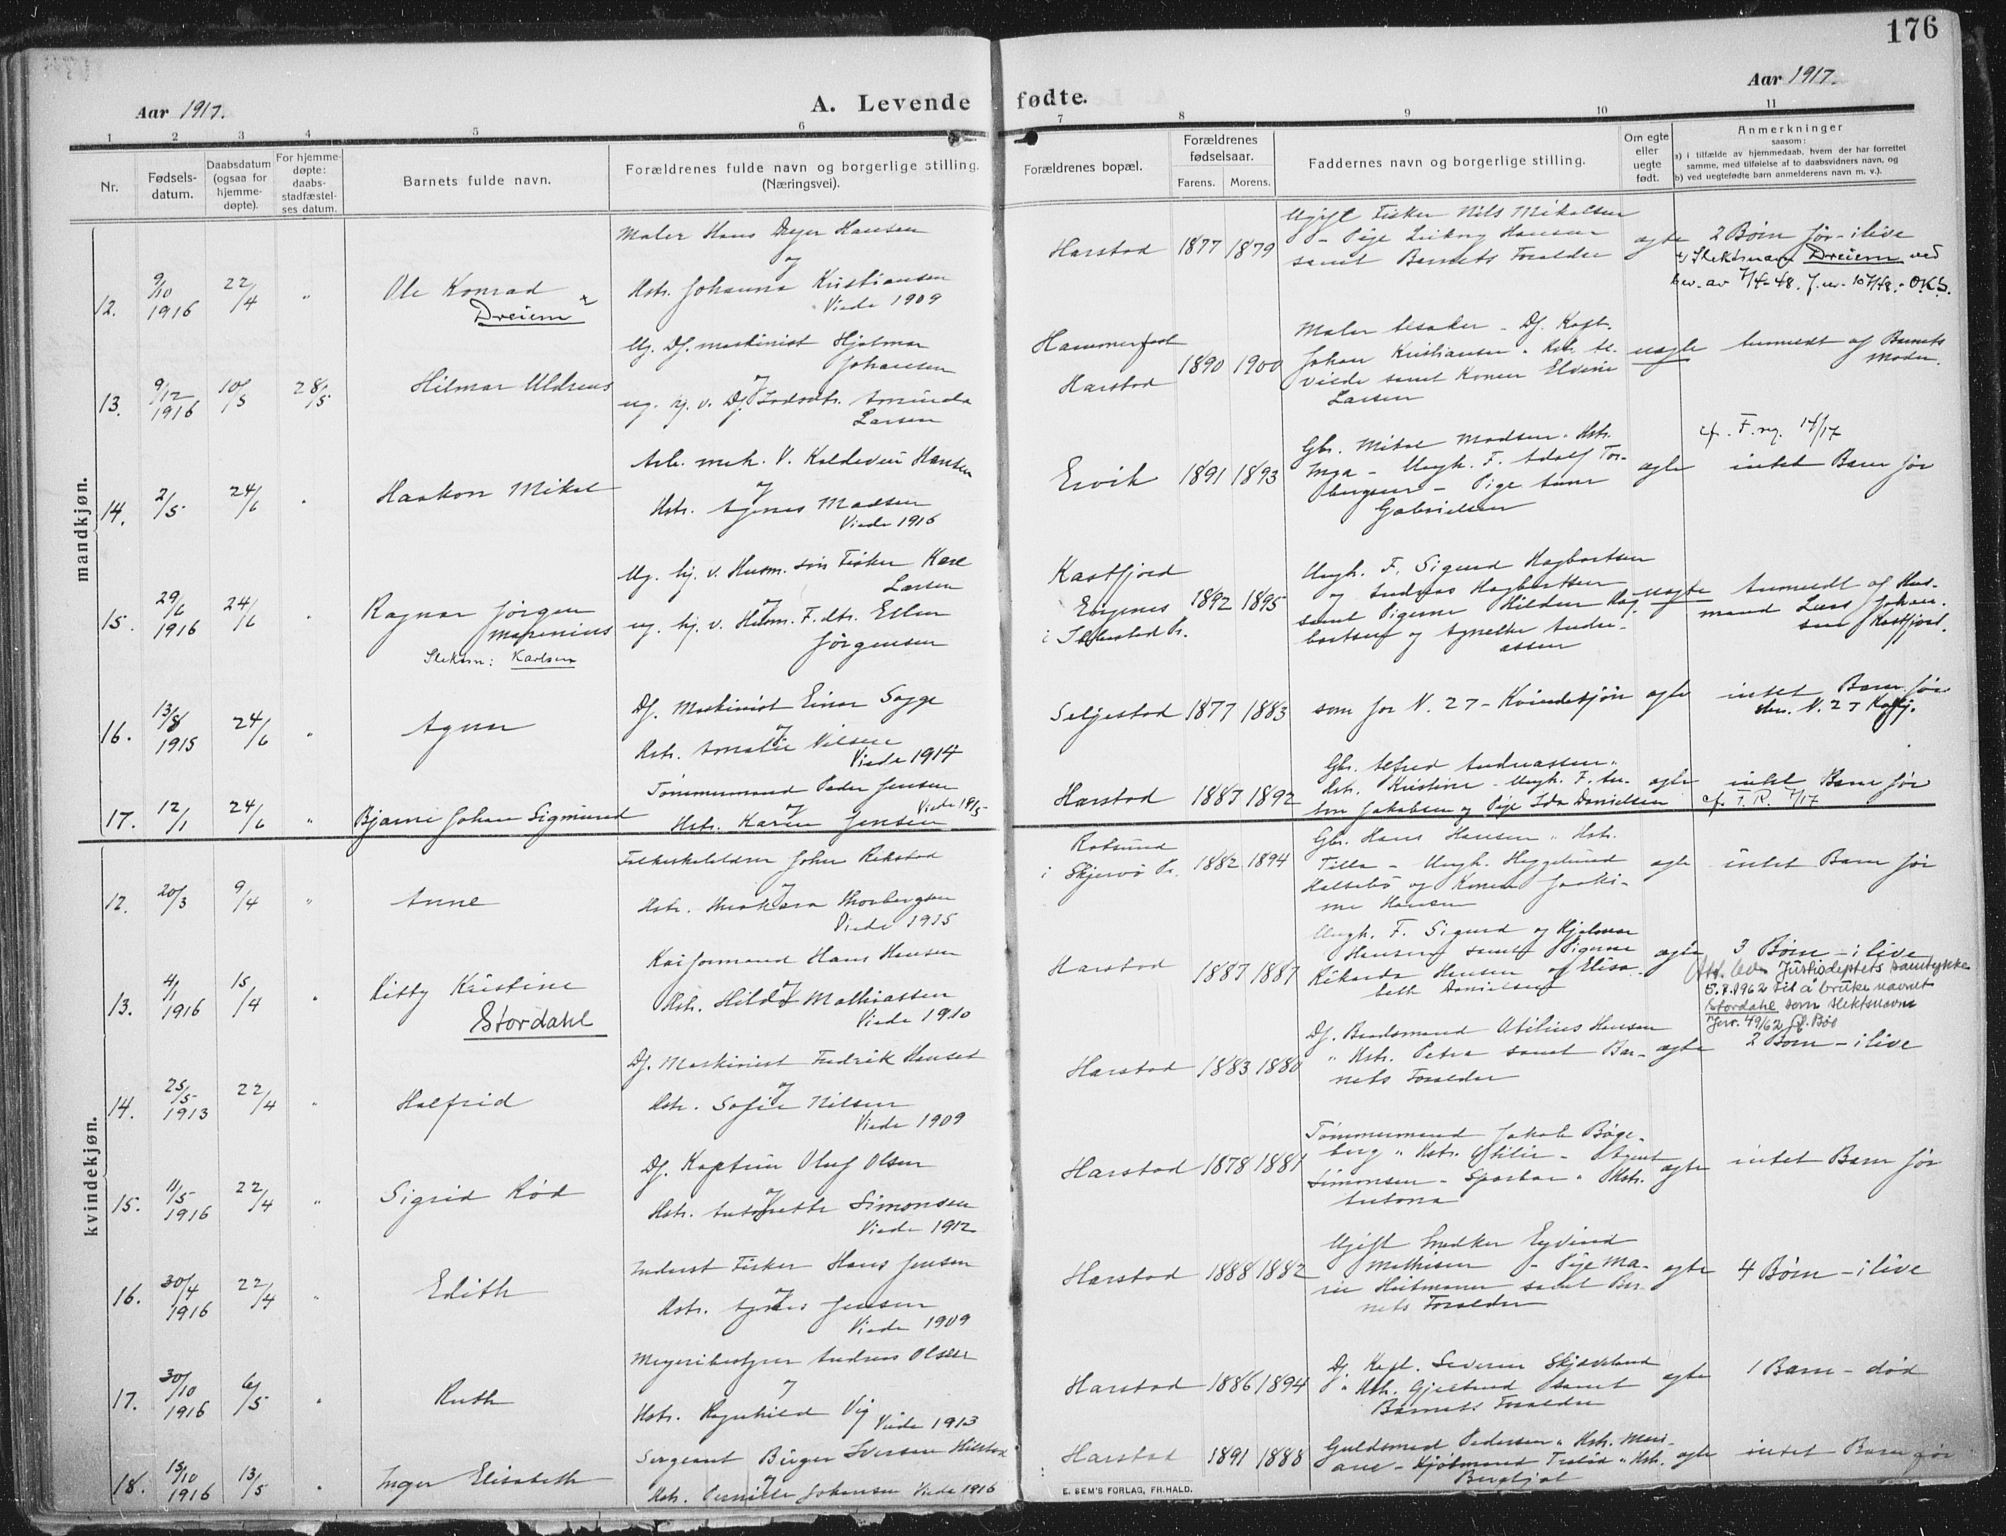 176
Aar 1917.
A. Levende fødte.
Aar 1917.
1 2 3 4 5 6 7 8 9 10 11
Nr.
Fødsels-
datum.
Daabsdatum
(ogsaa for
hjemme-
døpte).
For hjemme-
døpte:
daabs-
stadfæstel-
ses datum.
Barnets fulde navn.
Forældrenes fulde navn og borgerlige stilling.
(Næringsvei).
Forældrenes bopæl.
Forældrenes
fødselsaar.
Farens. Morens.
Faddernes navn og borgerlige stilling.
Om egte
eller
uegte
født.
Anmerkninger
saasom:
a) i tilfælde av hjemmedaab, hvem der har forrettet
samme, med tilføielse af to daabsvidners navn, og
b) ved uegtefødte barn anmelderens navn m. v.).
mandkjøn.
12.
9/10
1916
22/4
"
Ole Konrad
Dreiem
Maler Hans Dryer Hansen
og
Hstr. Johanna Kristiansen
Viede 1909
Harstad
1877 1879
Ugift Fisker Nils Mikalsen
samt Barnets Forældre
ægte
2 Børn før - i live
Slektsnavn Dreiem ved
bev. av 7/4-48. J.nr. 107/48. O.K.S.
13.
9/12
1916
10/5
28/5.
Hilmar Aldreus
Ug. Df. maskinist Hjalmar
Johansen
og
Larsen
Hammerfest
Harstad
1890 1900
Johan Kristiansen
samt Konen Elvine
Larsen
uægte
anmeldt af Barnets
Moder.
14.
2/5
24/6
"
Haakon Mikal
Arb. mek. V. Kaldevei Hansen
og
Hstr. Agnes Madsen
Viede 1916
Ervik
1891 1893
Gbr. Mikal Madsen. Hstr.
Inga - Ungk. F. Adolf Tor-
bergsen - Pige Anne
Gabrielsen
ægte
cf. F. ng. 14/17
intet Barn før
15.
29/6
1916
24/6
"
Ragnar Jørgen
Marenius
Slektsn: Karlsen
Ug. hj. v. Husm. søn Fisker Karl
Larsen
og
ug. hj. v. Husm. F. dtr. Ellen
Jørgensen
Kastfjord
Evgenes
1892 1895
Ungk. F. Sigurd Hagbartsen
og Andreas Hagbartsen
samt Pigerne Hildur Hag-
bartsen og Agnethe Andre-
assen
uægte
anmeldt af Hus-
mand Lars Johan-
sen Kastfjord.
16.
13/8
1915
24/6
"
Agnar
Df. Maskinist Einar Sagge
og
Hstr. Amalie Nilsen
Viede 1914
Seljestad
1877 1883
som for N. 27 - Kvindekjøn
ægte
intet Barn før
N. 27 Kvkj.
17.
12/1
24/6
"
Bjarne Johan Sigmund
Tømmermand Peder Jensen
og
Viede 18/5
Hstr. Karen Jensen
Harstad
1887 1892
Gbr. Alfred Andreassen
Hstr. Kristine - Ungk. F. An-
ton Jakobsen og Pige Ida Danielsen
ægte
intet Barn før
cf. T. R. 7/17
kvindekjøn.
12.
20/3
9/4
"
Anne
Folkeskolelærer Johan Rekstad
og
Thorbergsen
Viede 1915
Rotsund
i Skjervø Pr.
1882 1894
Gbr. Hans Hansen " Hstr.
Tilla - Ungk. Hyggelund
Halsebø og Konen Joaki-
me Hansen
ægte
intet Barn før
13.
4/1
1916
15/4
"
Kitty Kristine
Stordahl
Kaiformand Hans Hansen
og
Hstr. Hilda Mathiassen
Viede 1910
Harstad
1887 1887
Ungk. F. Sigurd og Hjalmar
Hansen samt Pigerne
Rikarda Hansen og Elisa-
beth Danielsen
ægte
3 Børn - i live
Justisdeptets samtykke
5.8.1962 til å bruke navnet
Stordahl som slektsnavn
Jnr. 49/62
14.
25/5
1913
22/4
"
Halfrid
Df. Maskinist Fredrik Hansen
og
Hstr. Sofie Nilsen
Viede 1909
Harstad
1883 1880
Df. Baadsmand Otilius Hansen
" Hstr. Petra samt Bar-
nets Forældre
ægte
2 Børn - i live
15.
11/5
1916
22/4
"
Sigrid Rød
Df. Kaptein Oluf Olsen
og
Hstr. Antonette Simonsen
Viede 1912
Harstad
1878 1881
Tømmermand Jakob Bøge-
berg " Hstr. Otilie - Agent
Simonsen - Sparbar " Hstr.
Antona
ægte
intet Barn før
16.
30/4
1916
22/4
"
Edith
Inderst Fisker Hans Jensen
og
Hstr. Agnes Jensen
Viede 1909
Harstad
1888 1882
Ugift Snedker Eyvind
Mathisen - Pige Ma-
rie Heitmann samt Bar-
nets Forældre
ægte
4 Børn - i live
17.
30/10
1916
6/5
"
Ruth
Meieribestyrer Andreas Olsen
og
Hstr. Ragnhild Vig
Viede 1913
Harstad
1886 1894
Df. Kapt. Severin Skjæveland
" Hstr. Gjertrud samt
Barnets Forældre
ægte
1 Barn - død
18.
15/10
1916
13/5
"
Inger Elisabeth
Sergeant Birger Iversen Hilstad
og
Hstr. Pernille Johansen Viede 1916
Harstad
1891 1888
Guldsmed Pedersen " Hstr. Mari-
ane - Kjøbmand " Hstr.
Bergljot
ægte
intet Barn før
E. SEM'S FORLAG, FR.HALD.